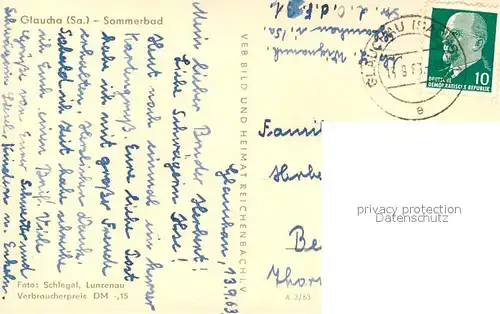 Glaucha (Sa.) – Sommerbad
Glauchau, 13.9.63
Mein lieber Bruder Herbert!
Liebe Schwägerin Ilse!
Heut noch einmal ein kurzer
Kartengruß. Eure liebe Post
habe ich mit großer Freude
erhalten, Herzlichen Dank.
Sobald ich Zeit habe schreibe
ich Euch einen Brief. Viele
Grüße von Eurer Schwester und
Schwägerin Kindern u. Enkeln.
Foto: Schlegel, Lunzenau
Verbraucherpreis DM -,15
VEB BILD UND HEIMAT REICHENBACH I.V
A 3/63
Glauchau i./Sa.
GLAUCHAU (SACHS)
e
DEUTSCHE
DEMOKRATISCHE REPUBLIK
10
Famil
Herbe
Be
Thor
privacy protection
Datenschutz